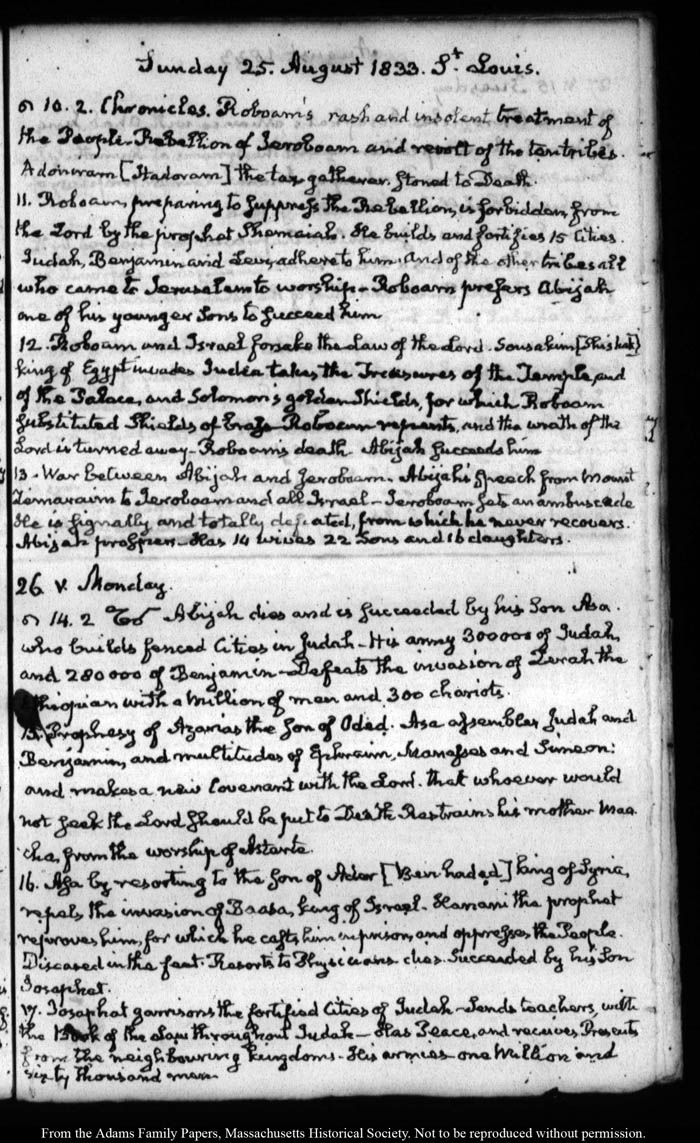 Sunday 25. August 1833. St Louis.
10. 2. Chronicles. Roboam's rash and insolent treatment of
the People. Rebellion of Jeroboam and revolt of the ten tribes.
Adoniram [Hadoram] the tax gatherer. stoned to Death.
11. Roboam, preparing to suppress the Rebellion, is forbidden from
the Lord by the prophet Shemaiah. He builds and fortifies 15 Cities.
Judah, Benjamin and Levi, adhere to him. And of the other tribes all
who came to Jerusalem to worship - Roboam prefers Abijah
one of his younger Sons to succeed him
12. Roboam and Israel forsake the Law of the Lord. Sousakim [Shishak]
king of Egypt invades Judea takes the Treasures of the Temple, and
of the Palace, and Solomon's golden Shields, for which Roboam
substituted Shields of brass - Roboam repents, and the wrath of the
Lord is turned away - Roboam's death. Abijah succeeds him
13. War between Abijah and Jeroboam. Abijah's speech from Mount
Zemaraim to Jeroboam and all Israel - Jeroboam sets an ambuscade
He is signally and totally defeated, from which he never recovers.
Abijah prospers - Has 14 wives 22 Sons and 16 daughters.
26. V. Monday.
14. 2 Abijah dies and is succeeded by his Son Asa.
who builds fenced Cities in Judah - His army 300000 of Judah,
and 280000 of Benjamin - Defeats the invasion of Zerah the
Ethiopian with a Million of men and 300 chariots.
15. Prophesy of Azarias the Son of Oded. Asa assembles Judah and
Benjamin, and multitudes of Ephraim, Manasses and Simeon:
and makes a new Covenant with the Lord. that whoever would
not seek the Lord should be put to Death Restrains his mother Maa
cha, from the worship of Astarte.
16. Asa by resorting to the Son of Ader [Ben hadad] king of Syria,
repels the invasion of Baasa, king of Israel - Hanani the prophet
reproves him, for which he casts him in prison, and oppresses the People.
Diseased in the feet. Resorts to Physicians. dies. Succeeded by his Son
Josaphat.
17. Josaphat garrisons the fortified Cities of Judah - Sends teachers, with
the Book of the Law throughout Judah - Has Peace, and receives Presents
from the neighbouring kingdoms - His armies one Million and
sixty thousand men.
From the Adams Family Papers, Massachusetts Historical Society. Not to be reproduced without permission.